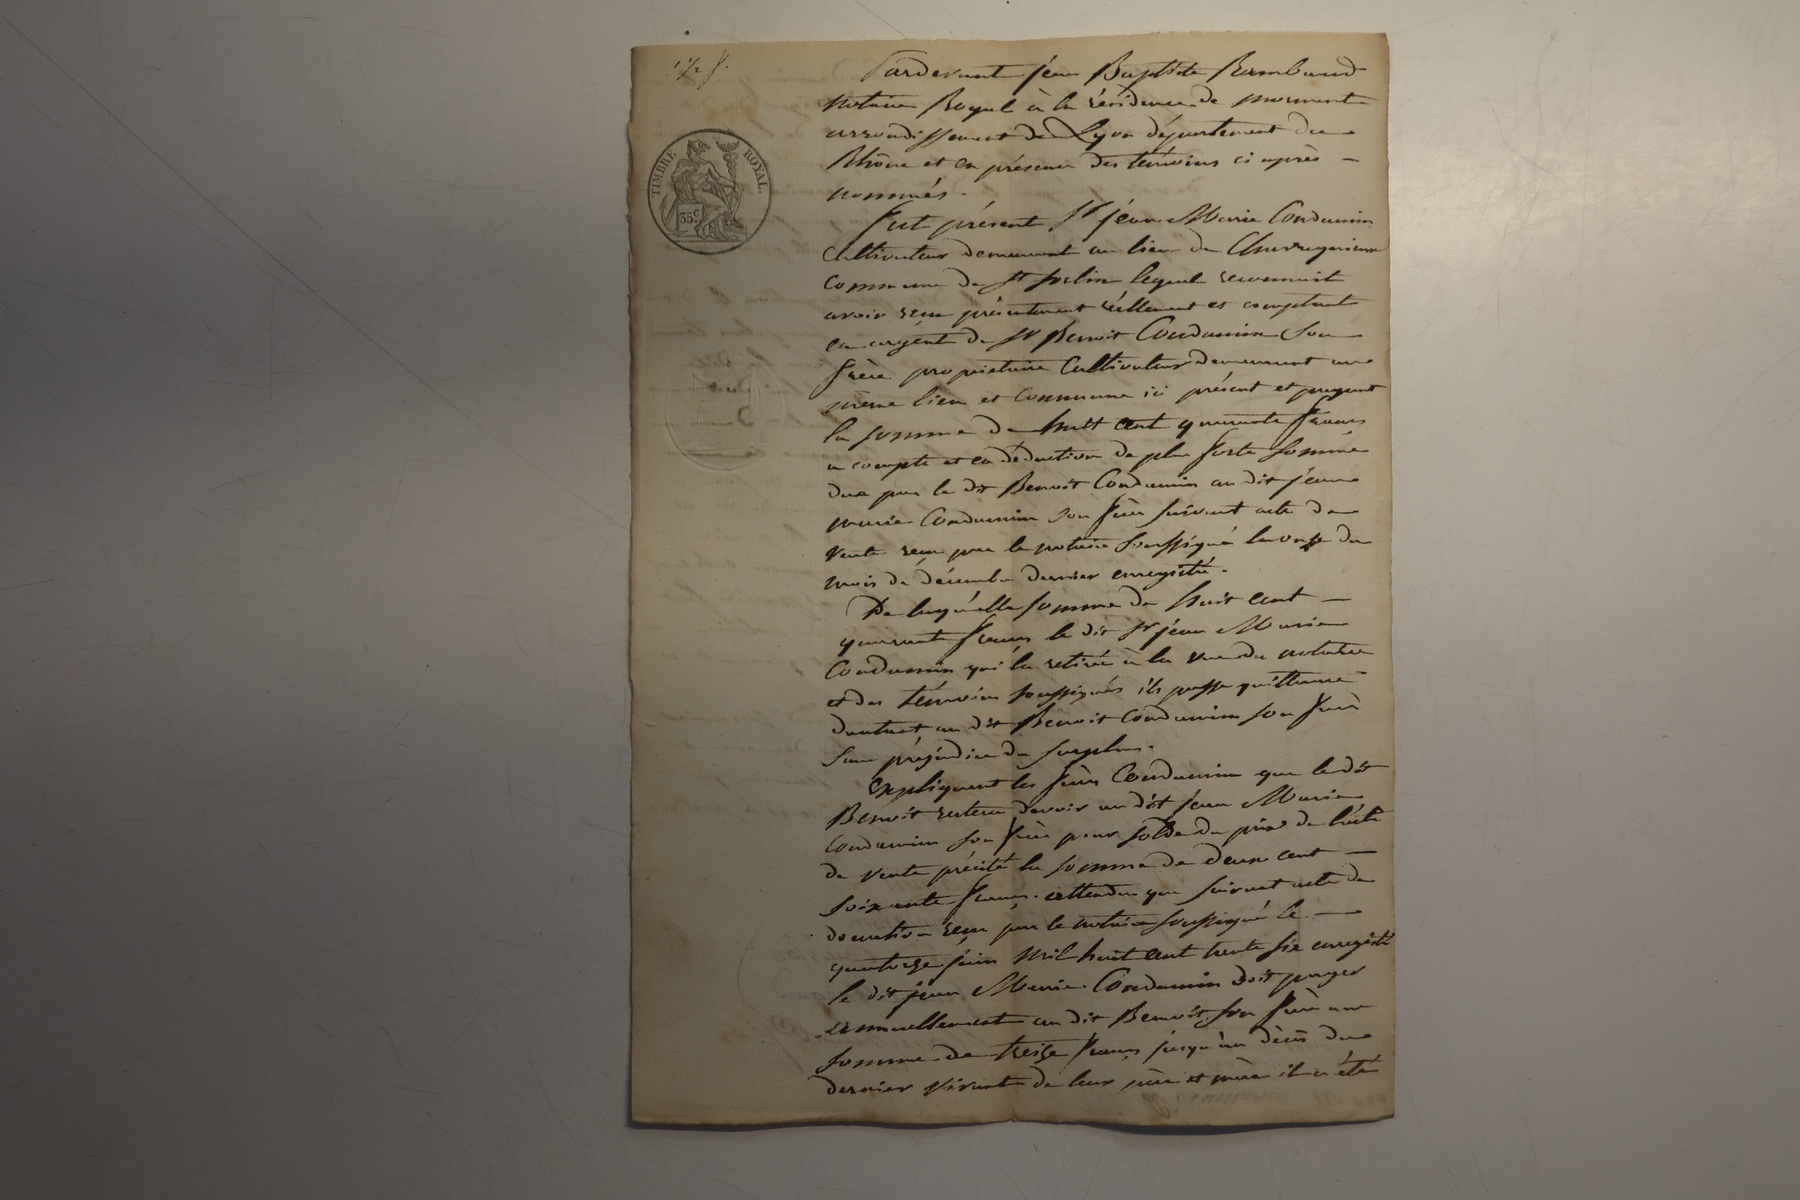 1 1/2 f.
TIMBRE ROYAL.
35 c
Pardevant jean Baptiste Rambaud
notaire Royal à la résidence de mornant
arrondissement de Lyon département du
Rhône et en présence des témoins ci après
nommés.
fut présent Sr jean Marie Condamin
Cultivateur demeurant au lieu de
commune de St Sorlin lequel reconnait
avoir reçu présentement réellement et comptant
en argent de Sr Benoit Condamin Son
frère propriétaire Cultivateur demeurant au
même lieu et commune ici présent et payant
la somme de huit cent quarante francs
a compte et en déduction de plus forte somme
due par le dit Benoit Condamin au dit jean
marie Condamin son frère suivant acte de
vente reçu par le notaire soussigné le onze du
mois de décembre dernier enregistré.
De laquelle somme de huit cent
quarante francs le dit Sr jean Marie
Condamin qui l'a retirée à la vue du notaire
et des témoins soussignés ils passe quittance
d'autant au dit Benoit Condamin son frère
sans préjudice du surplus.
Expliquent les frères Condamin que le dit
Benoit restera devoir au dit jean Marie
Condamin son frère pour solde du prix de l'acte
de vente précité la somme de deux cent
soixante francs. attendu que suivant acte de
donation reçu par le notaire soussigné le
quatorze juin mil huit cent trente six enregistré
le dit jean Marie Condamin doit payer
annuellement au dit Benoit son frère une
somme de treize francs jusqu'au décès du
dernier vivant de leur père et mère il a été